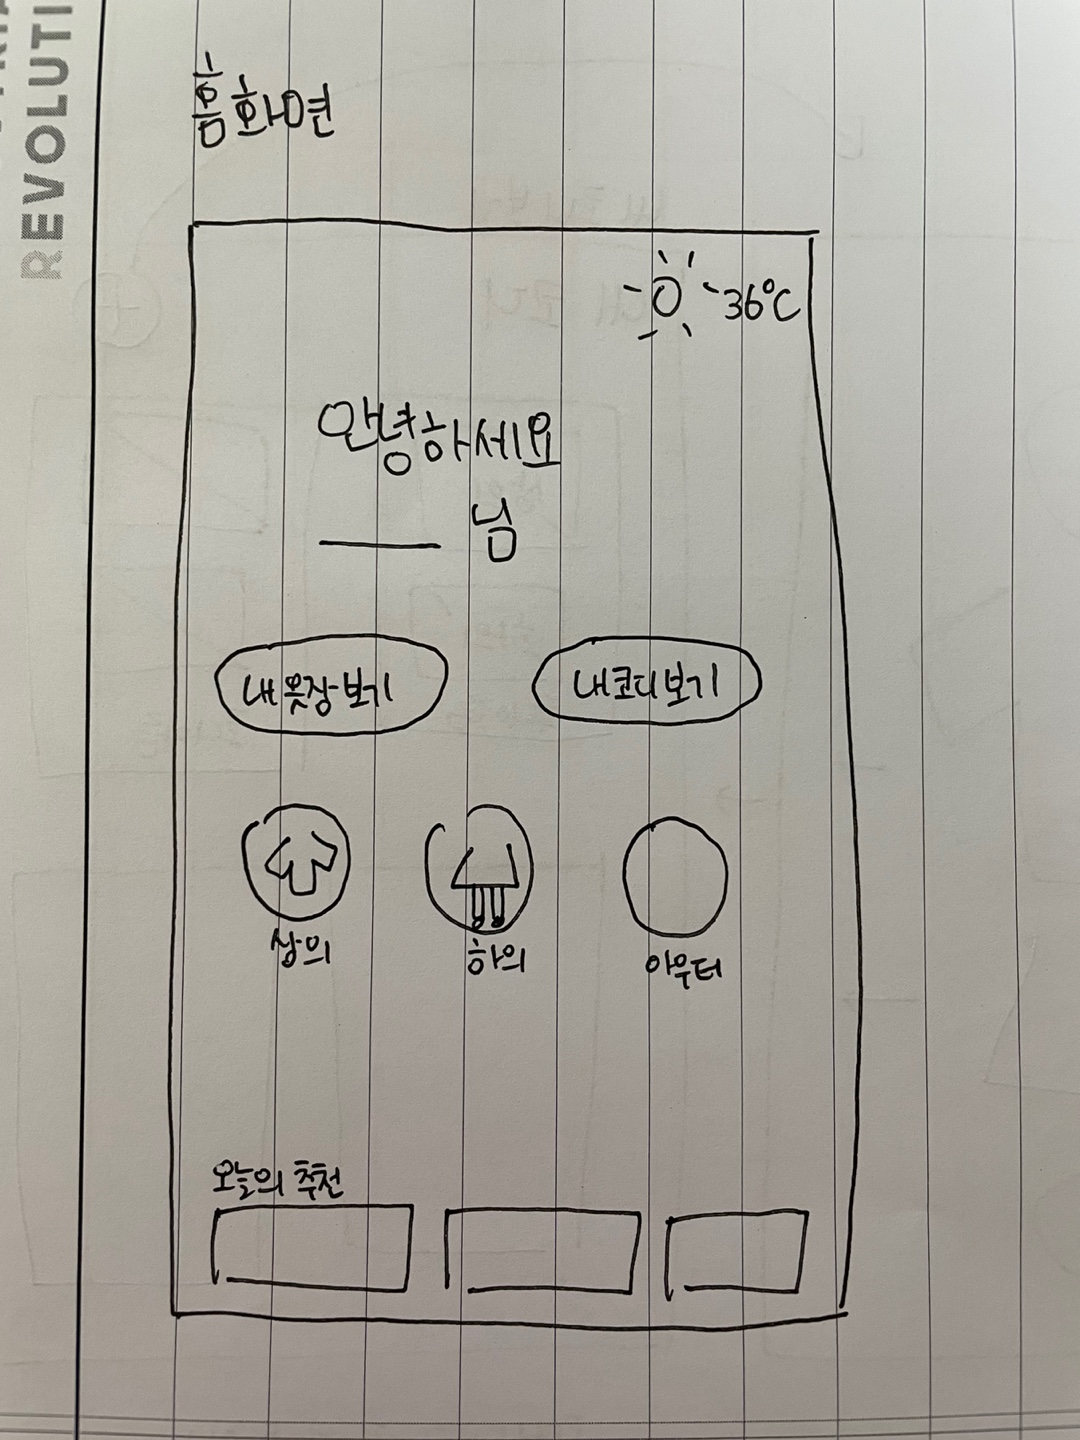 REVOLUTI
홈화면
36°C
안녕하세요
님
내옷장보기
내코디보기
상의
하의
아우터
오늘의 추천